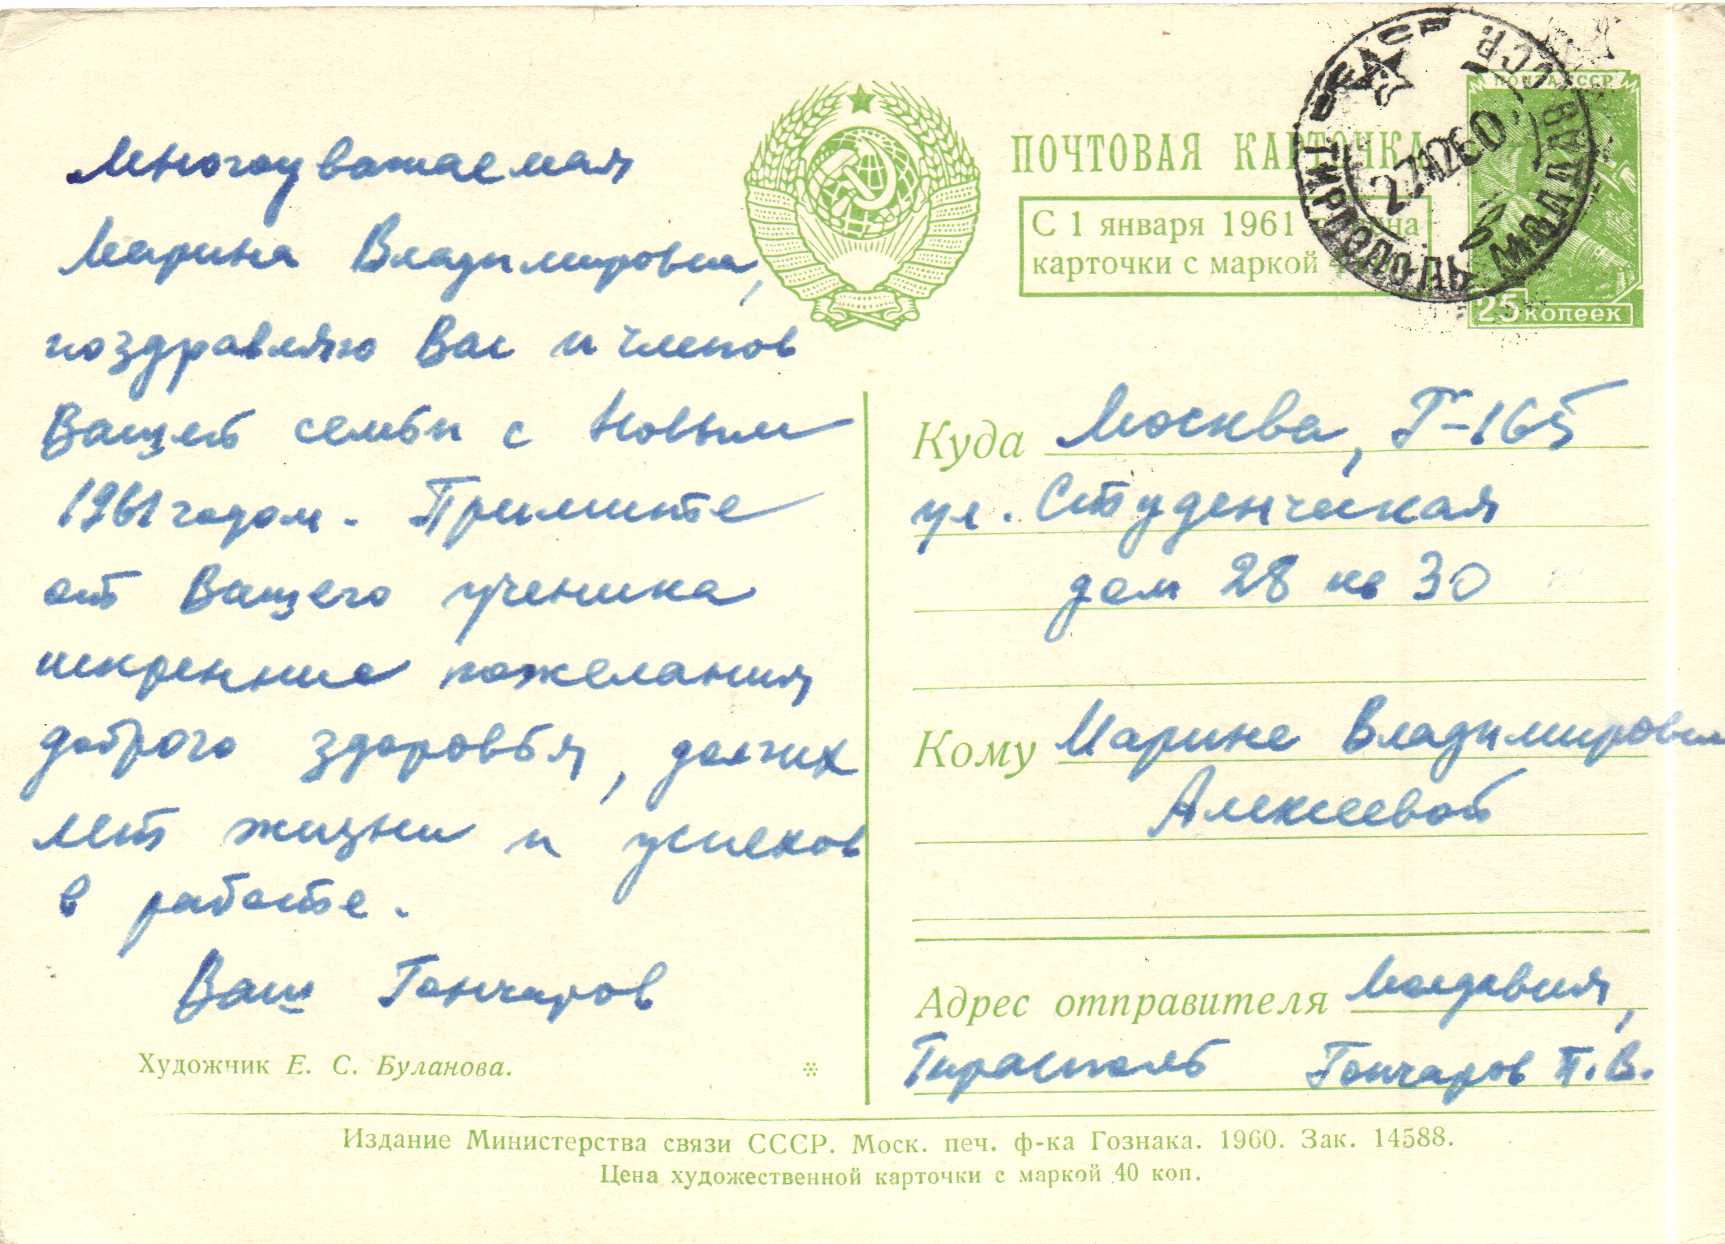 Многоуважаемая
Марина Владимировна,
поздравляю Вас и членов
Вашей семьи с Новым
1961 годом. Примите
от Вашего ученика
искренние пожелания
доброго здоровья, долгих
лет жизни и успехов
в работе.
Ваш Гончаров
Художник Е. С. Буланова.
ПОЧТОВАЯ КАРТОЧКА
С 1 января 1961
карточки с маркой
ПОЧТА СССР
25 копеек
27 12 60
ТИРАСПОЛЬ МОЛДАВ ССР
Куда Москва, Г-165
ул. Студенческая
дом 28 кв 30
Кому Марине Владимировне
Алексеевой
Адрес отправителя Молдавия,
Тирасполь Гончаров П.В.
Издание Министерства связи СССР. Моск. печ. ф-ка Гознака. 1960. Зак. 14588.
Цена художественной карточки с маркой 40 коп.